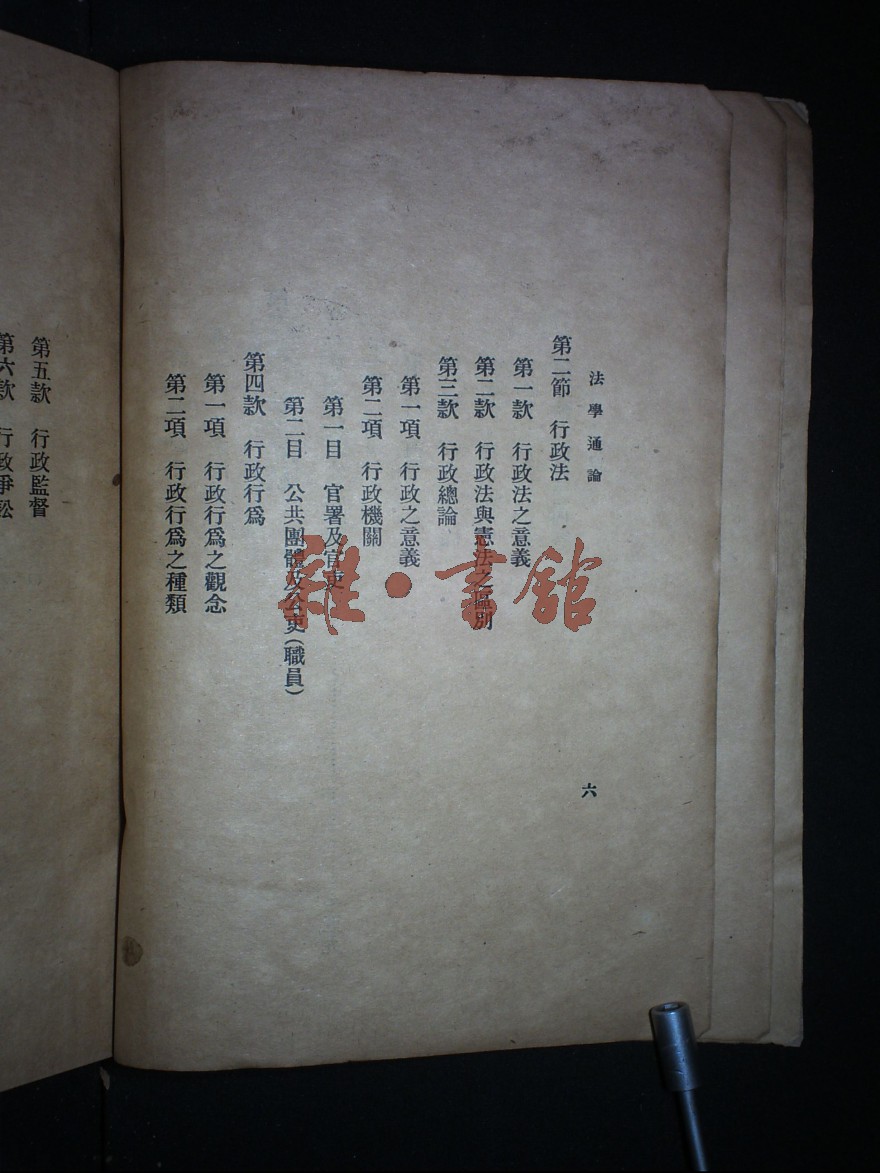 法學通論
六
第二節　行政法
第一款　行政法之意義
第二款　行政法與憲法之區別
第三款　行政總論
第一項　行政之意義
第二項　行政機關
第一目　官署及官吏
第二目　公共團體及公吏(職員)
第四款　行政行爲
第一項　行政行爲之觀念
第二項　行政行爲之種類
第五款　行政監督
第六款　行政爭訟
雜·書館